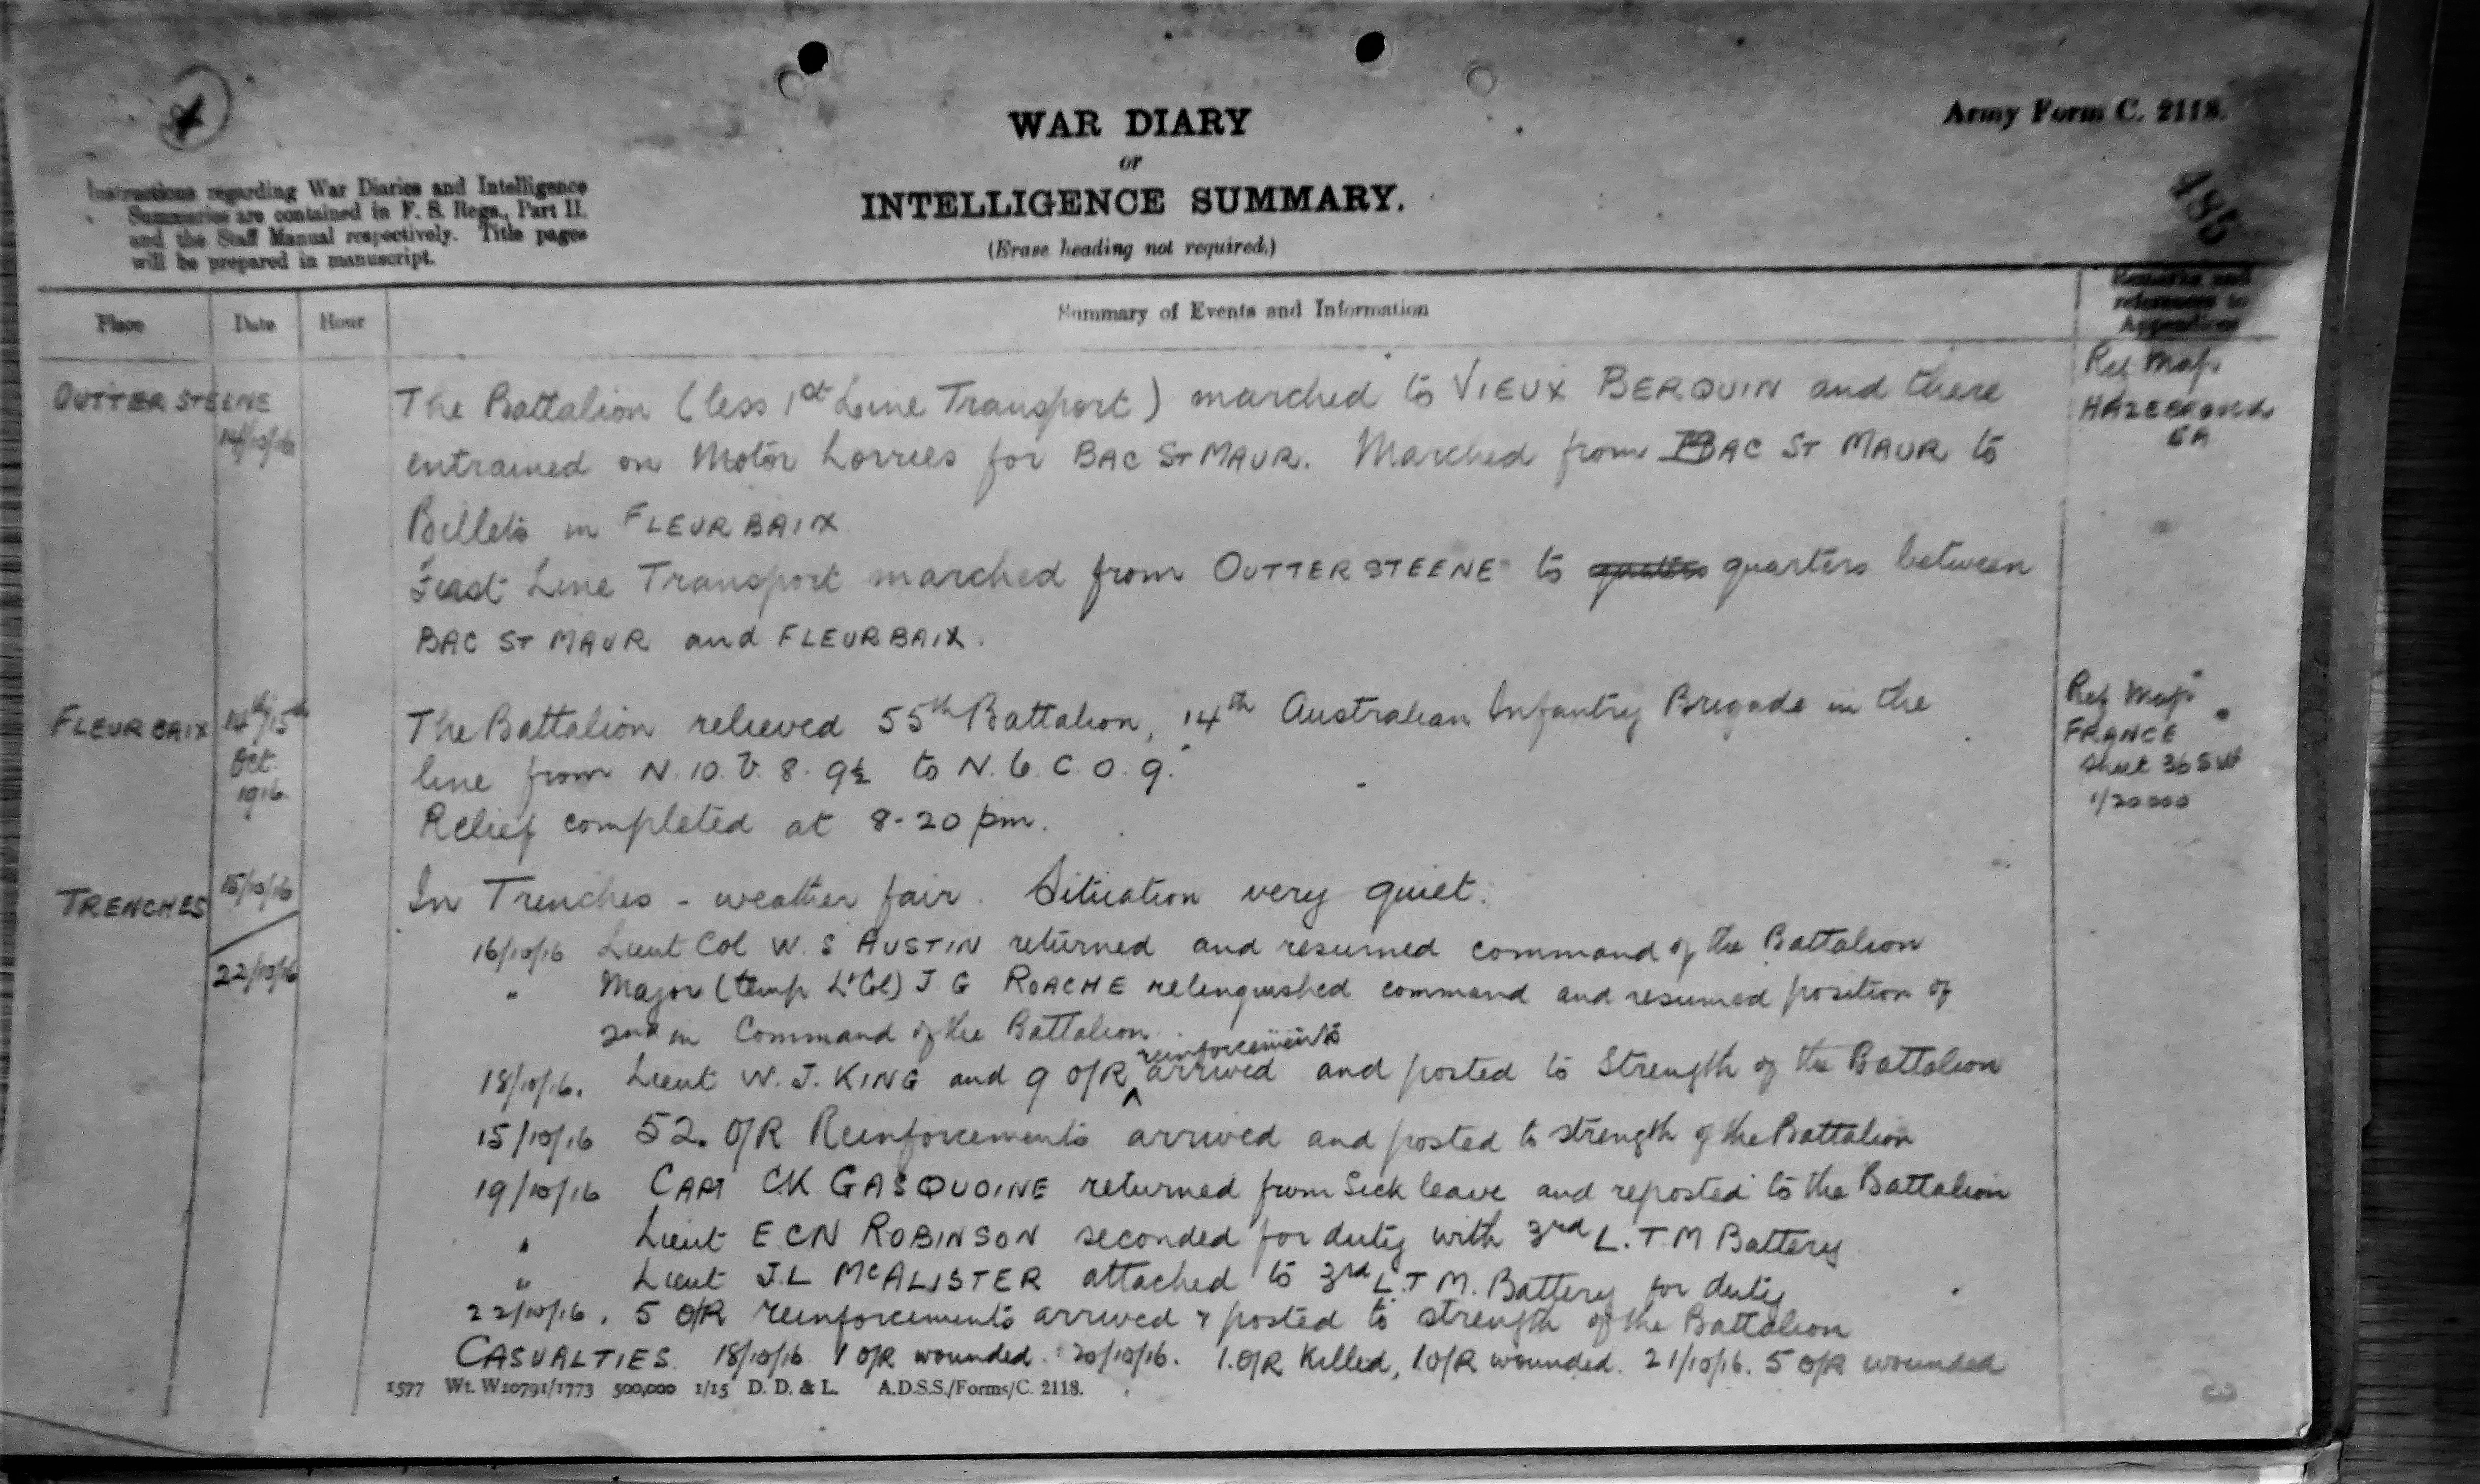 4
WAR DIARY
or
INTELLIGENCE SUMMARY.
(Erase heading not required.)
Army Form C. 2118.
485
Instructions regarding War Diaries and Intelligence
Summaries are contained in F. S. Regs., Part II.
and the Staff Manual respectively. Title pages
will be prepared in manuscript.
Place
Date
Hour
Summary of Events and Information
Remarks and
references to
Appendices
OUTTERSTEENE
14/10/16
The Battalion (less 1st Line Transport) marched to VIEUX BERQUIN and there
entrained on Motor Lorries for BAC ST MAUR. Marched from BAC ST MAUR to
Billets in FLEURBAIX
First Line Transport marched from OUTTERSTEENE to quarters between
BAC ST MAUR and FLEURBAIX.
Ref Map
HAZEBROUCK
5A
FLEURBAIX
14th/15th
Oct
1916
The Battalion relieved 55th Battalion, 14th Australian Infantry Brigade in the
line from N.10.b.8.9½ to N.6.C.0.9.
Relief completed at 8-20 pm.
Ref Map
FRANCE
Sheet 36 SW
1/20000
TRENCHES
15/10/16
22/10/16
In Trenches - weather fair. Situation very quiet.
16/10/16 Lieut Col W. S AUSTIN returned and resumed command of the Battalion
" Major (temp Lt Col) J G ROACHE relenquished command and resumed position of
2nd in Command of the Battalion.
18/10/16. Lieut W. J. KING and 9 O/R reinforcements arrived and posted to Strength of the Battalion
15/10/16 52. O/R Reinforcements arrived and posted to strength of the Battalion
19/10/16 CAPT CK GASQUOINE returned from Sick leave and reposted to the Battalion
" Lieut E CN ROBINSON seconded for duty with 3rd L. T M Battery
" Lieut J.L McALISTER attached to 3rd L.T M. Battery for duty
22/10/16. 5 O/R reinforcements arrived & posted to strength of the Battalion
CASUALTIES. 18/10/16 1 O/R wounded. 20/10/16. 1.O/R Killed, 1.O/R wounded. 21/10/16. 5 O/R wounded
1577 Wt. W10791/1773 500,000 1/15 D. D. & L. A.D.S.S./Forms/C. 2118.